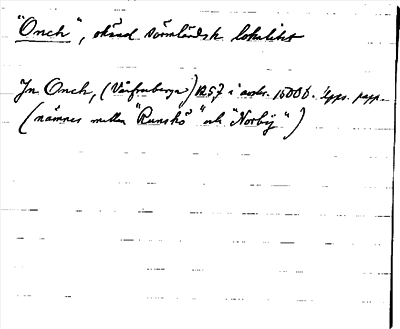 "Onch", okänd sörmländsk lokalitet
In Onch, (Vårfruberga) 1257 i avskr. 1500 b. Upps. papp.
(nämnes mellan "Runskö" och "Norby")